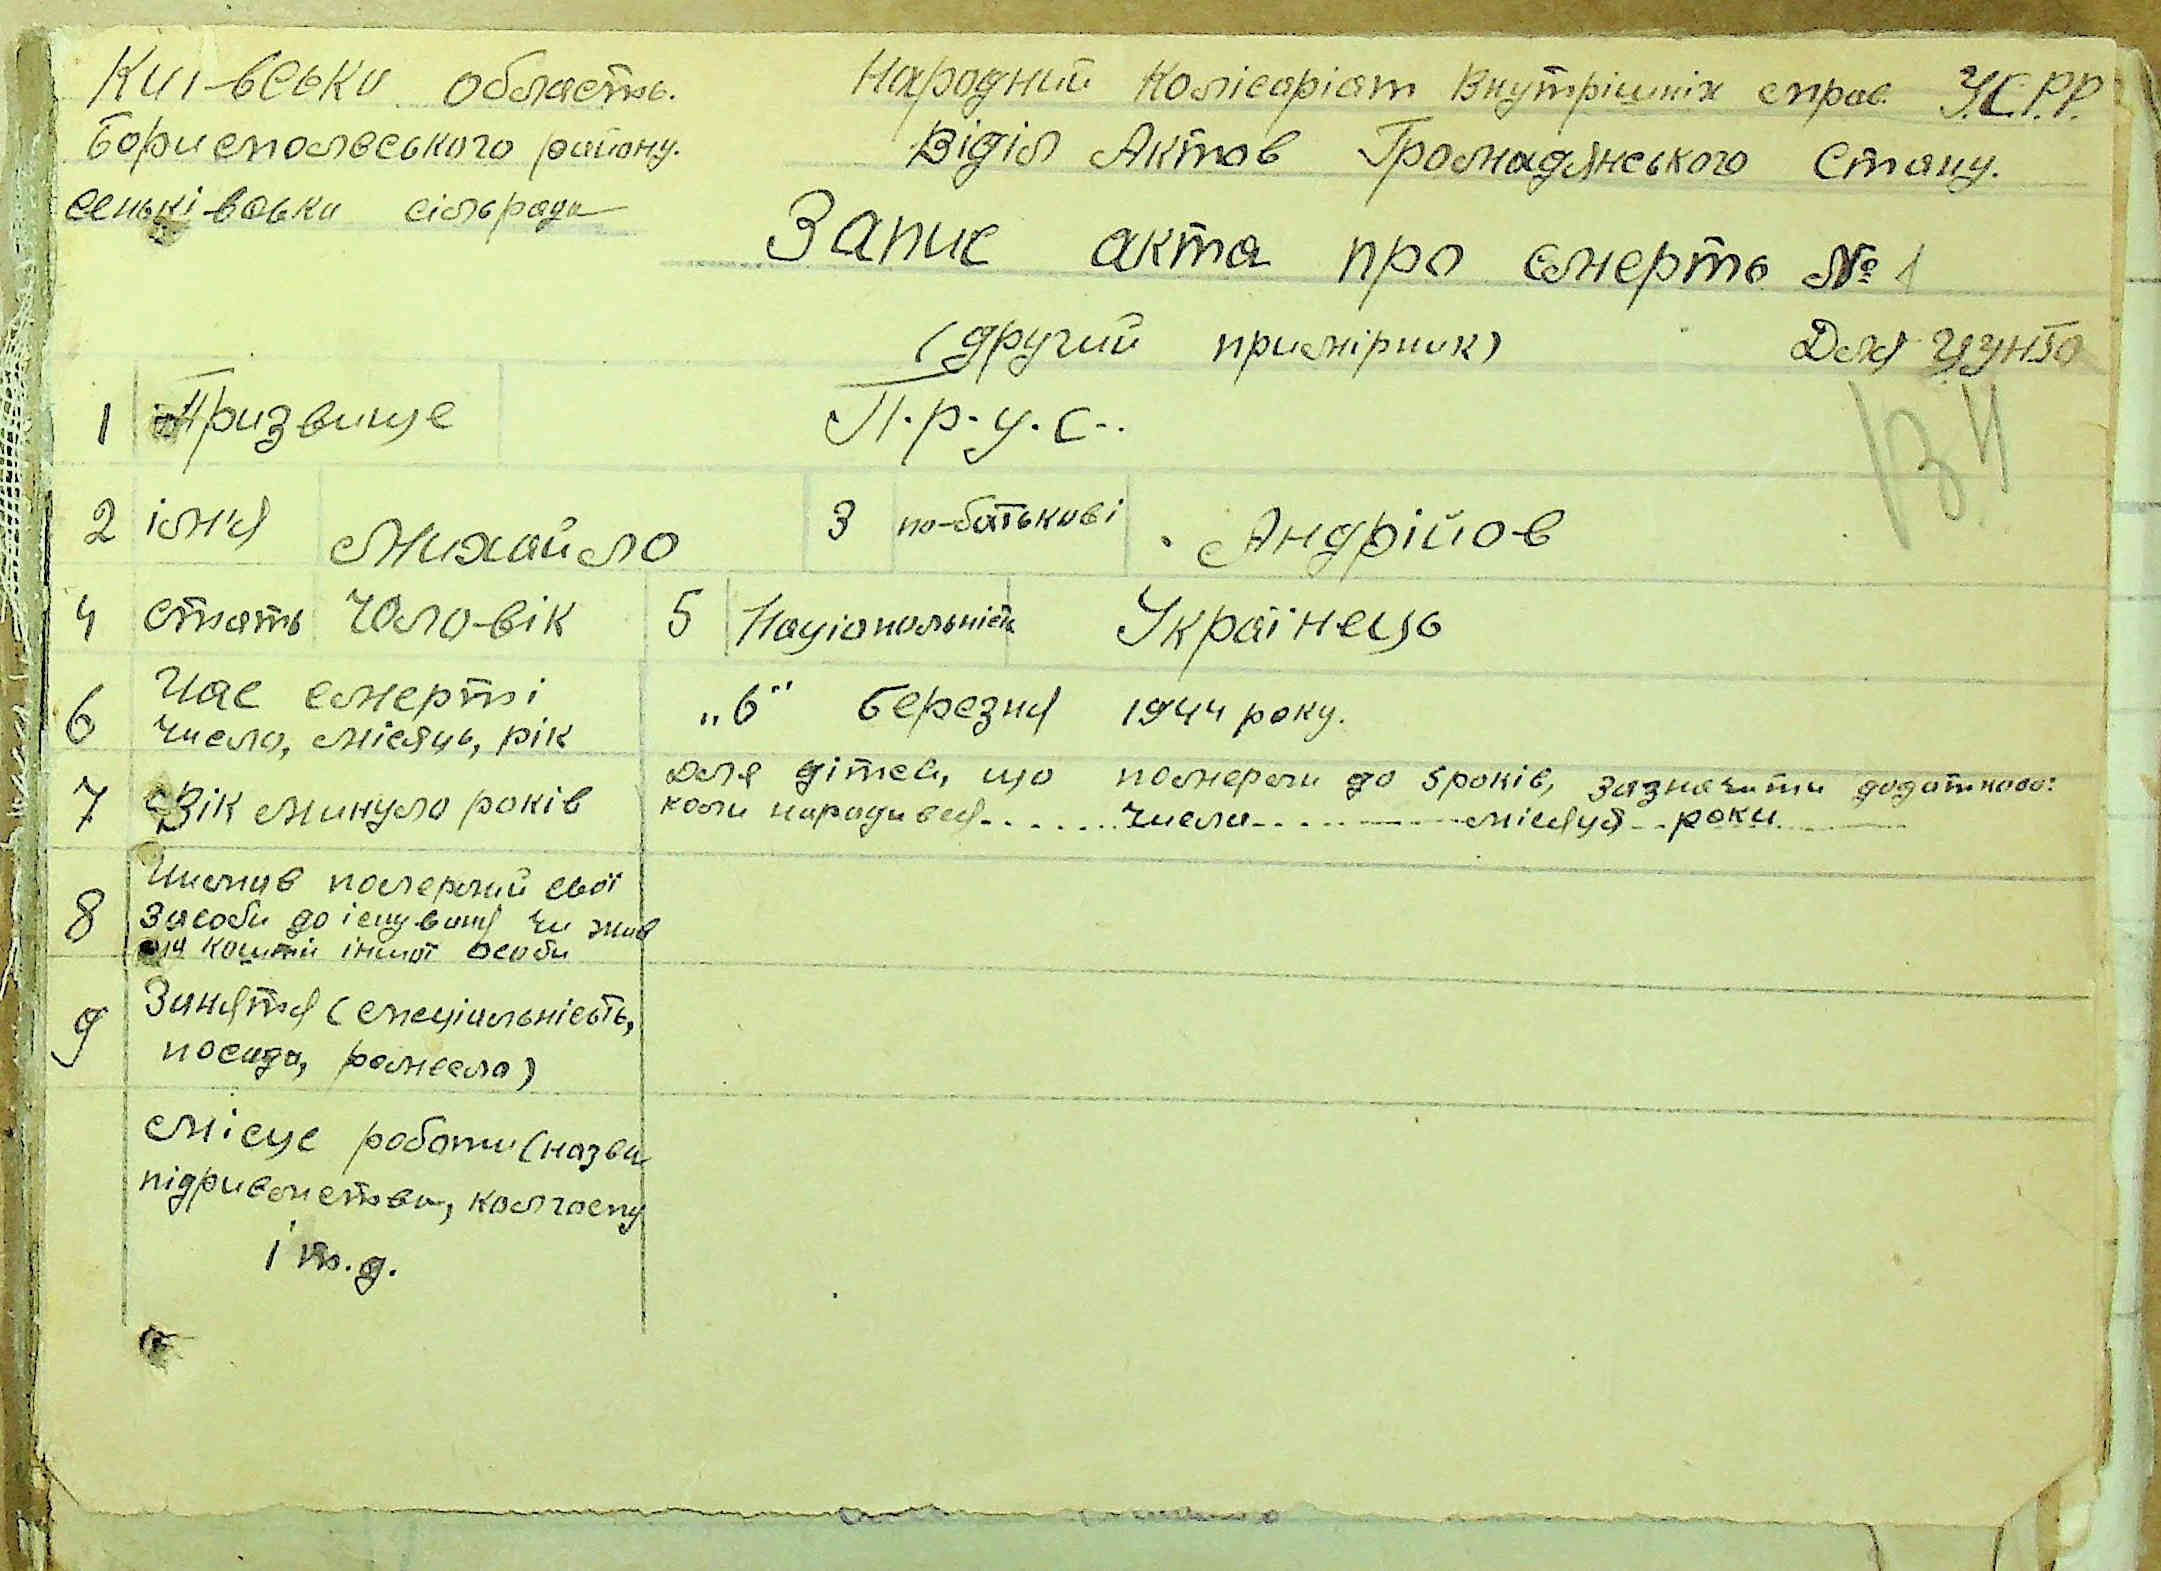 Київська область.
Бориспольського району.
Сеньківська сільрада
Народний Комісаріат Внутрішніх справ У.С.Р.Р.
Віділ Актов Громадянського Стану.
Запис акта про смерть № 1
(другий примірник) Для ЦУНГО
1 Призвище П.р.у.с..
2 ім'я Михайло 3 по-батькові Андрійов
4 стать Чоловік 5 Національність Українець
6 Час смерті число, місяць, рік „6" березня 1944 року.
7 Вік минуло років
для дітей, що померли до 5 років, зазначити додатково:
коли народився числа місяця роки
8 Чи мав померлий свої
засоби до існування чи жив
на кошти іншої особи
9 Заняття (спеціальність,
посада, ремесло)
Місце роботи (назва
підривмства, колгоспу
і т.д.